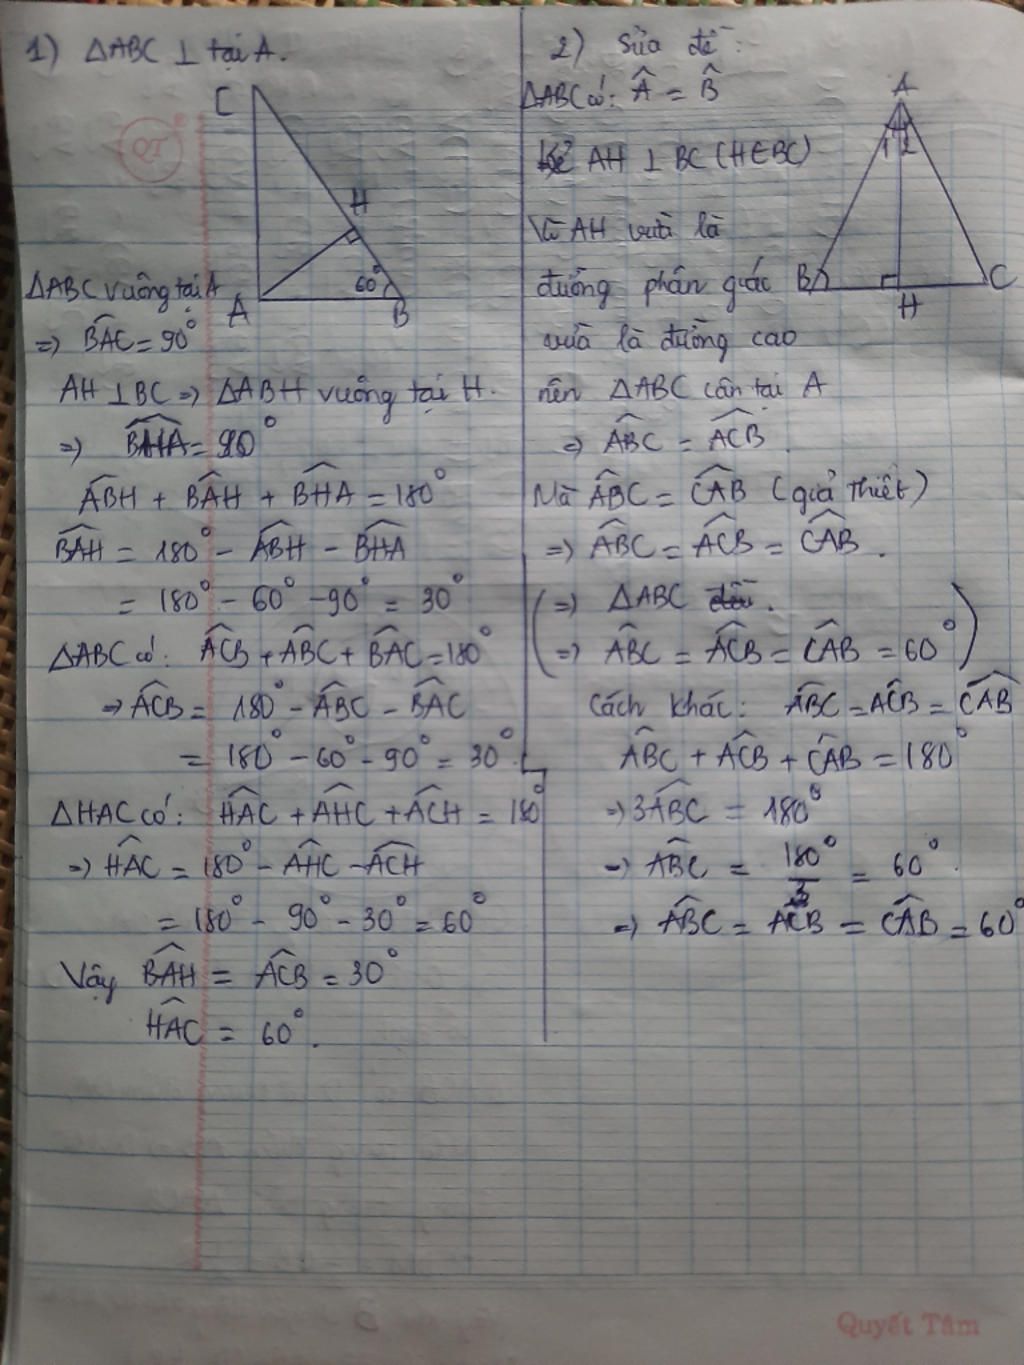 1) ΔABC ⊥ tại A.
C
H
60°
A
B
ΔABC vuông tại A
=> BAC = 90°
AH ⊥ BC => ΔABH vuông tại H.
=> BHA = 90°
ABH + BAH + BHA = 180°
BAH = 180° - ABH - BHA
= 180° - 60° - 90° = 30°
ΔABC có: ACB + ABC + BAC = 180°
=> ACB = 180° - ABC - BAC
= 180° - 60° - 90° = 30°.
ΔHAC có: HAC + AHC + ACH = 180°
=> HAC = 180° - AHC - ACH
= 180° - 90° - 30° = 60°
Vậy BAH = ACB = 30°
HAC = 60°.
2) Sửa đề:
ΔABC có: Â = B̂
Kẻ AH ⊥ BC (H∈BC)
A
1 2
B
C
H
Vì AH vừa là
đường phân giác
vừa là đường cao
nên ΔABC cân tại A
=> ABC = ACB.
Mà ABC = CAB (giả thiết)
=> ABC = ACB = CAB.
(=> ΔABC đều.
=> ABC = ACB = CAB = 60°)
Cách khác: ABC = ACB = CAB
ABC + ACB + CAB = 180°
=> 3ABC = 180°
=> ABC = 180°/3 = 60°.
=> ABC = ACB = CAB = 60°
QT
Quyết Tâm